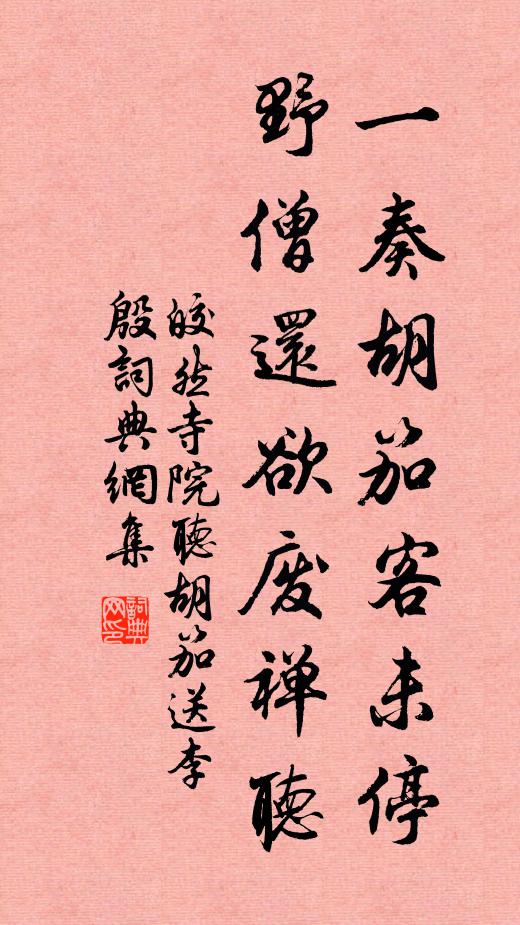 一奏胡笳客未停
野僧還欲废禅聽
皎然寺院聽胡笳送李
殷詞典網集
詞典
网印